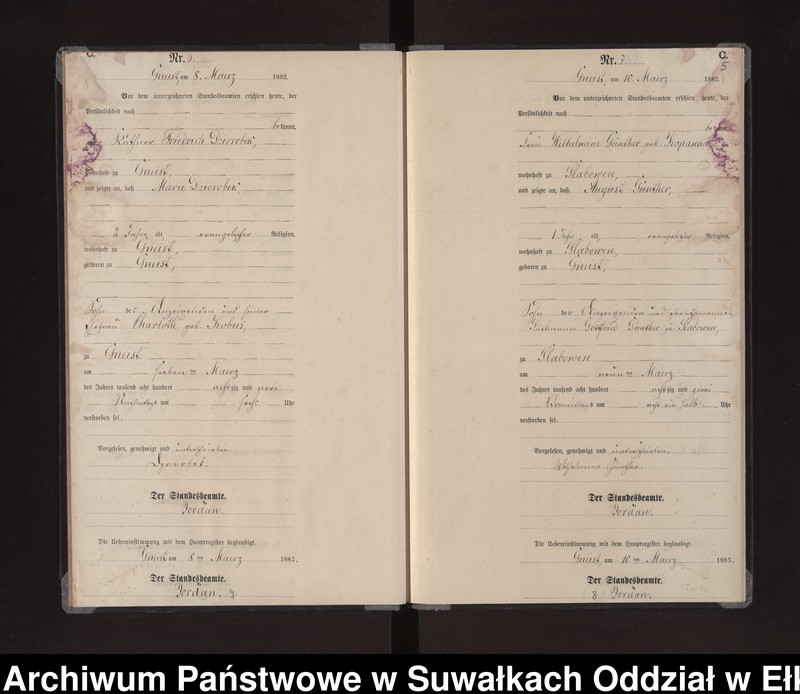 C.
Nr. 6.
Gneist, am 8. Maerz 1882.
Vor dem unterzeichneten Standesbeamten erschien heute, der
Persönlichkeit nach
bekannt,
Käthner Friedrich Dziorobek,
wohnhaft zu Gneist,
und zeigte an, daß Marie Dziorobek,
2 Jahre alt, evangelischer Religion,
wohnhaft zu Gneist,
geboren zu Gneist,
des Anzeigenden und seiner
Ehefrau Charlotte geb. Kobus,
zu Gneist
am sieben ten Maerz
des Jahres tausend acht hundert achtzig und zwei
Nachmittags um sechs Uhr
verstorben sei.
Vorgelesen, genehmigt und unterschrieben.
Der Standesbeamte.
Jordan.
Die Uebereinstimmung mit dem Hauptregister beglaubigt.
Gneist, am 8 ten Maerz 1882.
Der Standesbeamte.
Jordan.
C.
5
Nr. 7.
Gneist, am 10. Maerz 1882.
Vor dem unterzeichneten Standesbeamten erschien heute, der
Persönlichkeit nach
Frau Wilhelmine Günther geb.
wohnhaft zu Slabowen,
und zeigte an, daß August Günther,
1 Jahr, alt, evangelischer Religion,
wohnhaft zu Slabowen,
geboren zu Gneist,
Sohn der Anzeigenden und
Gottfried Günther zu Slabowen,
zu Slabowen
am neun ten Maerz
des Jahres tausend acht hundert achtzig und zwei
Vormittags um acht ein halb Uhr
verstorben sei.
Vorgelesen, genehmigt und unterschrieben.
Wilhelmine Günther.
Der Standesbeamte.
Jordan.
Die Uebereinstimmung mit dem Hauptregister beglaubigt.
Gneist, am 10 ten Maerz 1882.
Der Standesbeamte.
8 Jordan.
Archiwum Państwowe w Suwałkach Oddział w Eł